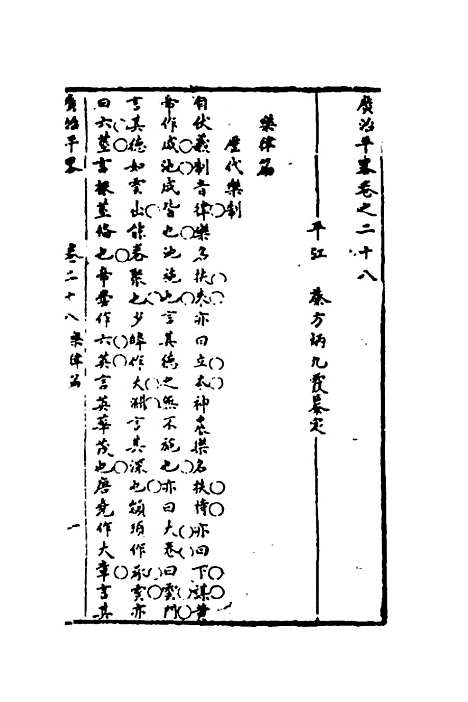 廣治平畧卷之二十八
平江 蔡方炳九霞纂定
樂律篇
歷代樂制
自伏羲制音律樂名扶來亦曰立本神農樂名扶持亦曰下謀黃
帝作咸池咸皆也池施也言其德之無不施也亦曰大卷曰雲門
言其德如雲出能卷聚也少皞作大淵言其深也顓頊作承雲亦
曰六莖言根莖條也帝嚳作六英言英華茂也唐堯作大章言其
廣治平畧 卷二十八 樂律篇 一